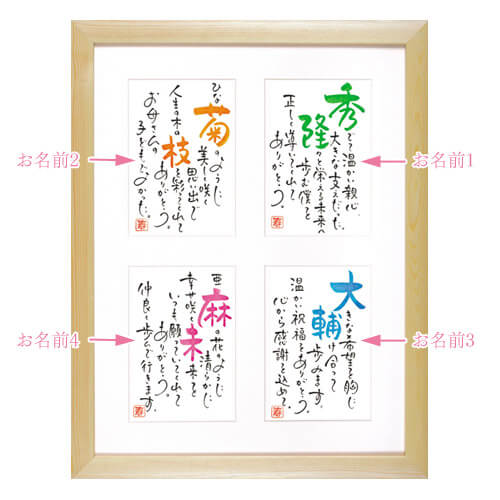 お名前1
秀でて温かい親心
大きな支えだった。
隆々と栄える未来へ
歩む僕を
正しく導いてくれて
ありがとう。
お名前2
ひな菊のように
美しく咲く
思い出で
人生の木の枝を彩ってくれて
ありがとう。
お母さんの
子をもってよかった。
お名前3
大きな希望を胸に
輔け合って
歩みます。
温かい祝福をありがとう。
心から感謝を込めて。
お名前4
亜麻の花のように
清らかに
幸せ咲く未来を
いつも願っていてくれて
ありがとう。
仲良く歩んで行きます。